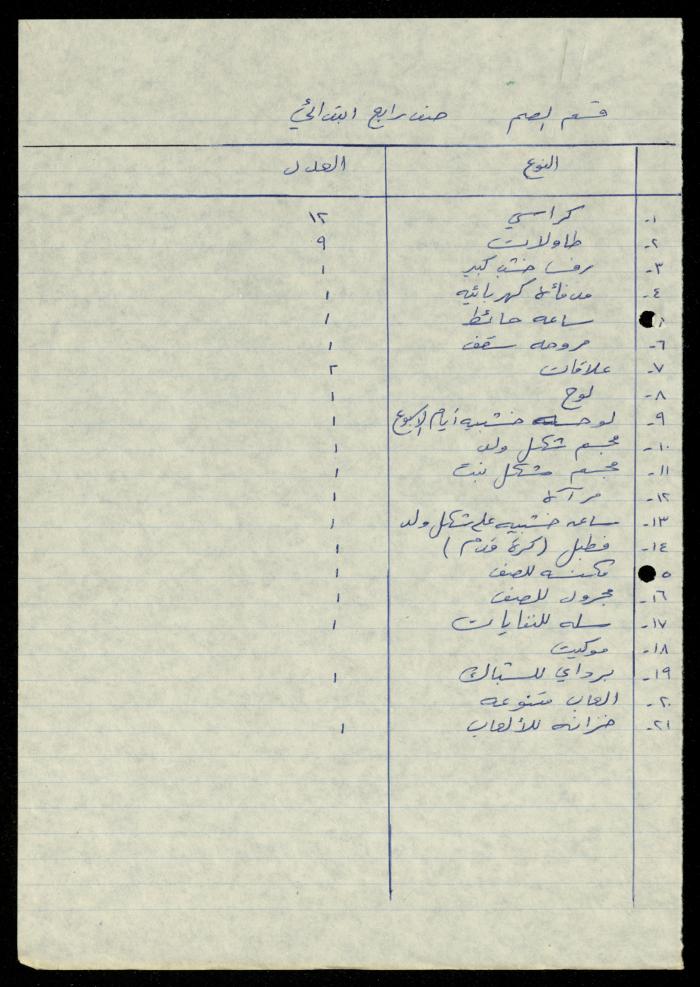 قسم الصم صف رابع ابتدائي
النوع العدد
١- كراسي ١٢
٢- طاولات ٩
٣- رف خشب كبير ١
٤- مدفأة كهربائيه ١
ساعه حائط ١
٦- مروحه سقف ١
٧- علاقات ٢
٨- لوح ١
٩- لوحه خشبيه أيام الاسبوع ١
١٠- مجسم شكل ولد ١
١١- مجسم شكل بنت ١
١٢- مرآة ١
١٣- ساعه خشبيه على شكل ولد ١
١٤- فطبل (كرة قدم) ١
٥- مكنسه للصف ١
١٦- مجرود للصف ١
١٧- سله للنفايات ١
١٨- موكيت
١٩- برداي للشباك ١
٢٠- العاب متنوعه
٢١- خزانه للألعاب ١